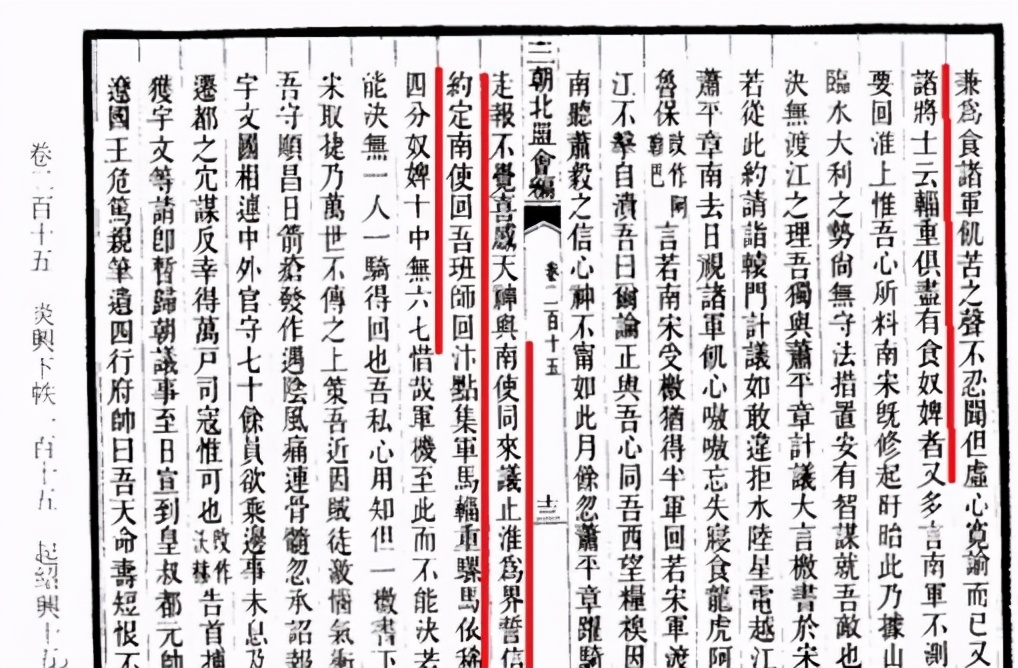 兼爲食諸軍飢苦之聲不忍聞但虛心寬諭而已又
諸將士云輜重俱盡有食奴婢者又多言南軍不測
要回淮上惟吾心所料南宋旣修起盱眙此乃據山
臨水大利之勢尙無守法措置安有智謀就吾敵也
決無渡江之理吾獨與蕭平章計議大言檄書於宋
若從此約請詣轅門計議如敢違拒水陸星電越江
蕭平章南去日視諸軍飢心嗷嗷忘失寢食龍虎阿
魯保改作阿魯巴言若南宋受檄猶得半軍回若宋軍渡
江不擊自潰吾曰爾論正與吾心同吾西望糧禭因
南聽蕭毅之信心神不甯如此月餘忽蕭平章躍騎
三朝北盟會編 卷二百十五 十二
走報不覺喜感天神與南使同來議止淮爲界誓信
約定南使回吾班師回汴點集軍馬輜重騾馬依稀
四分奴婢十中無六七惜哉軍機至此而不能決若
能決無一人一騎得回也吾私心用知但一檄書下
宋取捷乃萬世不傳之上策吾近因賊徒激惱氣衝
吾守順昌日箭瘡發作遇陰風痛連骨髓忽承詔報
宇文國相連中外官守七十餘員欲乘邊事未息及
遷都之宂謀反幸得萬戶司寇惟可也改作告首捕
獲宇文等請卽暫歸朝議事至日宣到皇叔都元帥
遼國王危篤親筆遺四行府帥曰吾天命壽短恨不
卷二百十五 炎興下帙一百十五 起紹興十五